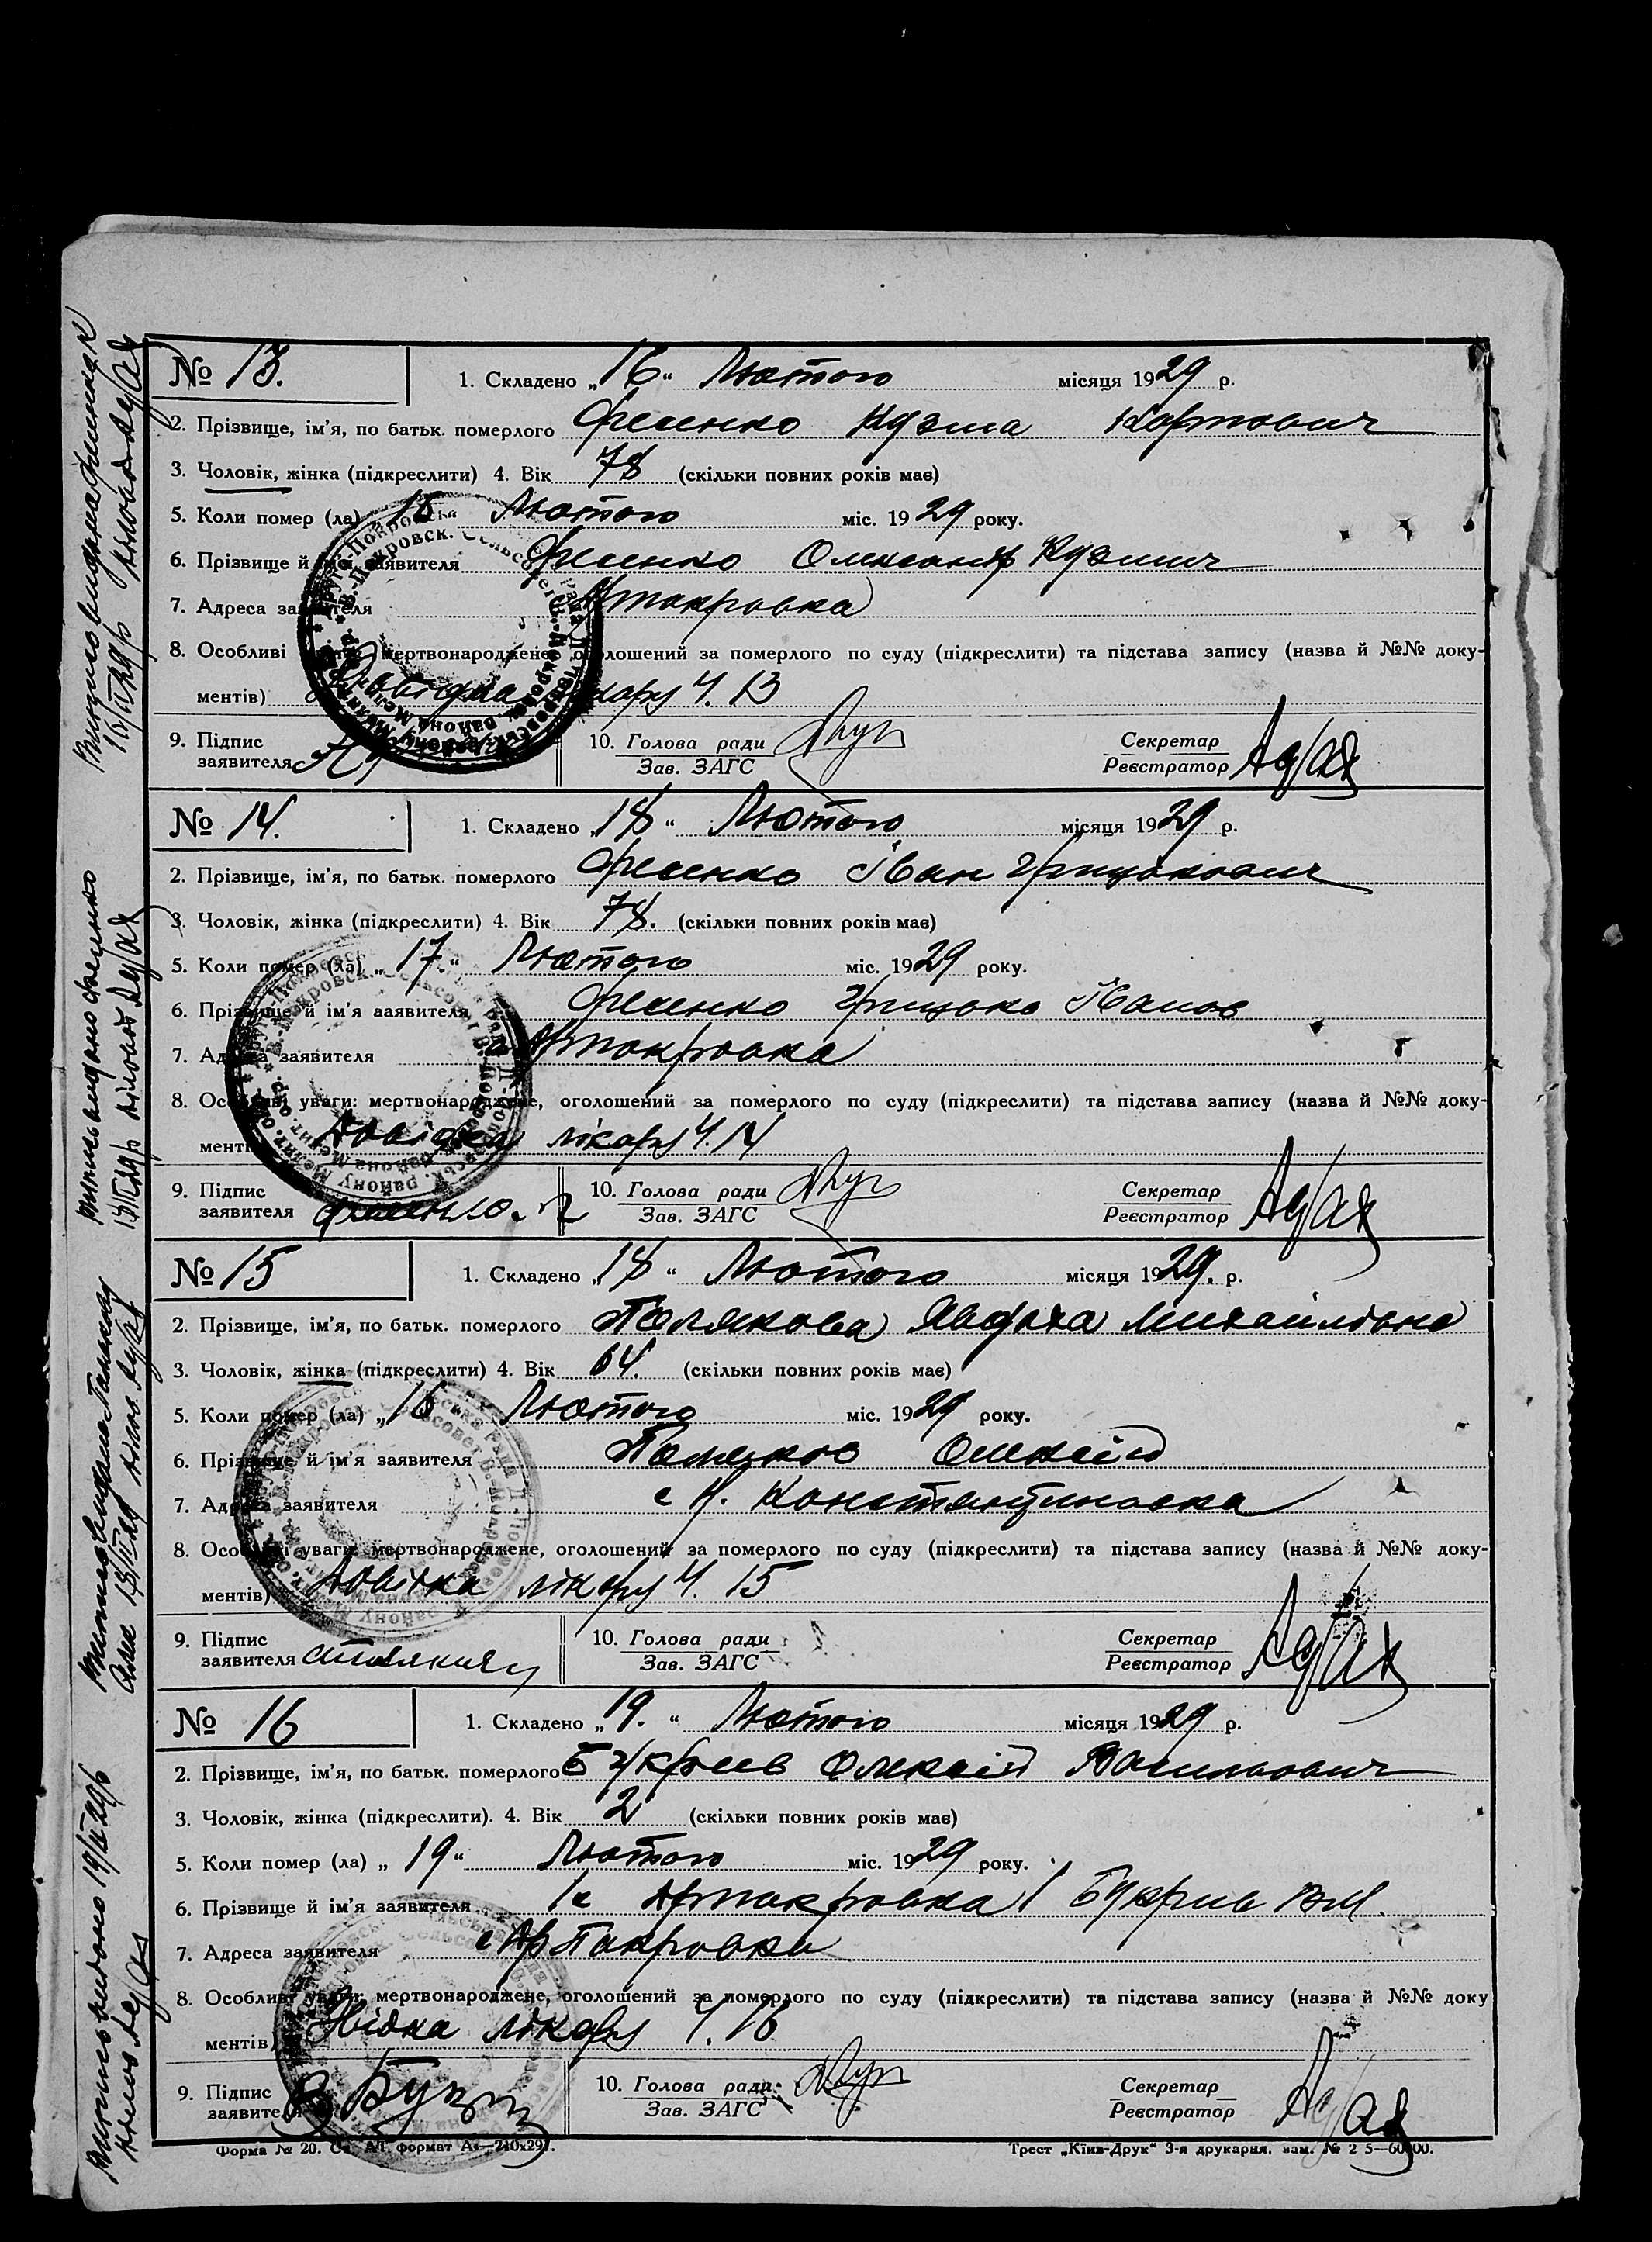 № 13. 1. Складено „16“ Лютого місяця 1929 р.
2. Прізвище, ім'я, по батьк. померлого Фесенко Кузма Карпович
3. Чоловік, жінка (підкреслити) 4. Вік 78 (скільки повних років має)
5. Коли помер (ла) 15 Лютого міс. 1929 року.
6. Прізвище й ім'я заявителя Фесенко Олександр Кузмич
7. Адреса заявителя Др покровка
8. Особливі мертвонароджене, оголошений за померлого по суду (підкреслити) та підстава запису (назва й №№ доку-
ментів) Довідка лікару Ч. 13
9. Підпис 10. Голова ради Секретар
заявителя Зав. ЗАГС Реєстратор
№ 14. 1. Складено „18“ Лютого місяця 1929 р.
2. Прізвище, ім'я, по батьк. померлого Фесенко Іван Грицькович
3. Чоловік, жінка (підкреслити) 4. Вік 78. (скільки повних років має)
5. Коли помер (ла) „17.“ Лютого міс. 1929 року.
6. Прізвище й ім'я заявителя Фесенко Грицько Іванов
7. Адреса заявителя Др покровка
8. Особливі уваги: мертвонароджене, оголошений за померлого по суду (підкреслити) та підстава запису (назва й №№ доку-
ментів) Довідка лікару Ч. 14
9. Підпис 10. Голова ради Секретар
заявителя Фесенко. Г Зав. ЗАГС Реєстратор
№ 15 1. Складено „18“ Лютого місяця 1929. р.
2. Прізвище, ім'я, по батьк. померлого Полякова Явдоха Михайлівна
3. Чоловік, жінка (підкреслити) 4. Вік 64. (скільки повних років має)
5. Коли помер (ла) „16“ Лютого міс. 1929 року.
6. Прізвище й ім'я заявителя Поляков Олексій
7. Адреса заявителя с Н. Констянтиновка
8. Особливі уваги: мертвонароджене, оголошений за померлого по суду (підкреслити) та підстава запису (назва й №№ доку-
ментів) Довідка лікару Ч. 15
9. Підпис 10. Голова ради Секретар
заявителя Зав. ЗАГС Реєстратор
№ 16 1. Складено „19.“ Лютого місяця 1929 р.
2. Прізвище, ім'я, по батьк. померлого Букреев Олексій Васильович
3. Чоловік, жінка (підкреслити). 4. Вік 2 (скільки повних років має)
5. Коли помер (ла) „19“ Лютого міс. 1929 року.
6. Прізвище й ім'я заявителя с Др покровка
7. Адреса заявителя с Др Покровка
8. Особливі уваги: мертвонароджене, оголошений за померлого по суду (підкреслити) та підстава запису (назва й №№ доку
ментів) Довідка лікару Ч. 16
9. Підпис 10. Голова ради Секретар
заявителя Зав. ЗАГС Реєстратор
Форма № 20. формат А4—210х297. Трест „Київ-Друк“ 3-я друкарня, зам. №